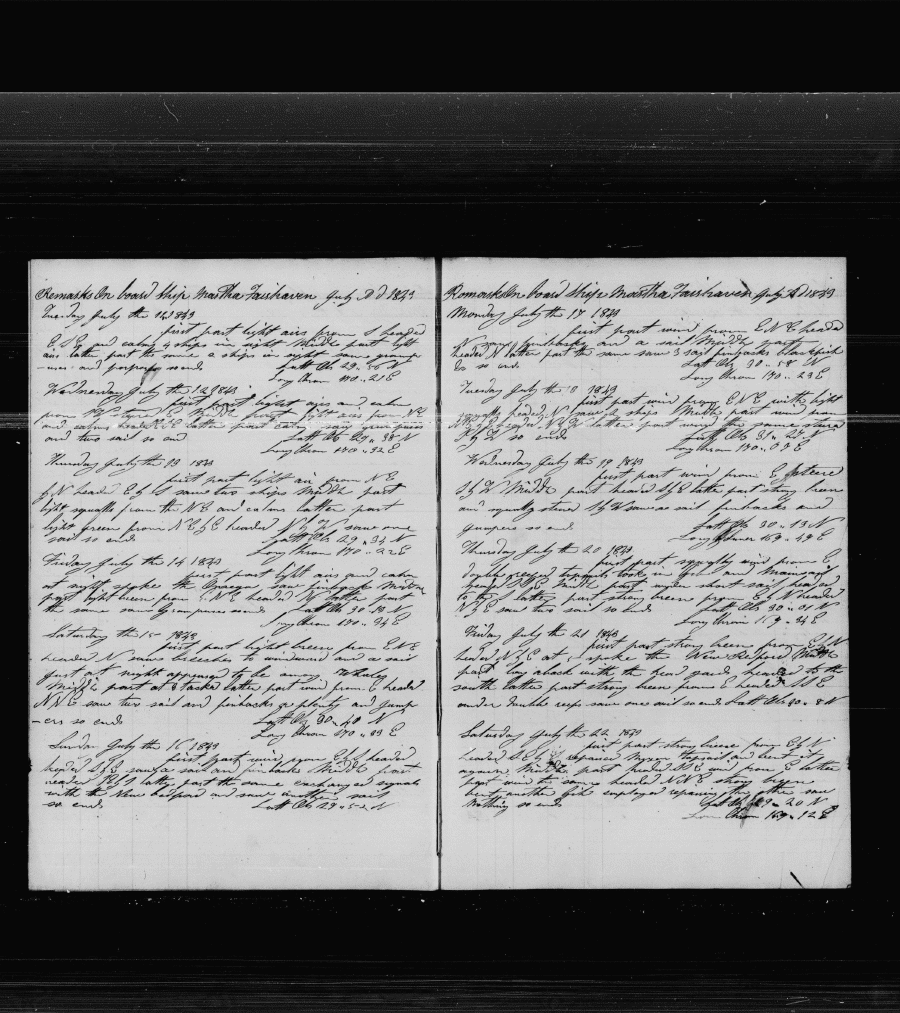 Remarks On board Ship Martha Fairhaven July AD 1843
Tuesday July the 11 1843
first part light airs from S headed
E S E and calm 4 ships in sight Middle part light
airs latter part the same 2 ships in sight saw grampu
-ses and porpoises so ends Latt Ob 29..56 N
Long Chron 170..21 E
Wednesday July the 12 1843
first part light airs and calm
from Middle part light airs from NE
and calms latter part calm saw grampuses
and two sail so ends Latt Ob 29..38 N
Long Chron 170..32 E
Thursday July the 13 1843
first part light air from N E
by N headed E by S saw two ships Middle part
light squalls from the N E and calms latter part
light breen from N E by E headed N by W saw one
sail so ends Latt Ob 29..34 N
Long Chron 170..22 E
Friday July the 14 1843
first part light airs and calm
at night spoke the saw Middle
part light breen from E N E headed N latter part
the same saw Grampuses so ends Latt Ob 30..18 N
Long Chron 170..34 E
Saturday the 15 1843
first part light breese from E N E
headed N saw breeches to windward and a sail
just at night appeared to be among Whales
Middle part at 8 tacked latter part wind from E headed
N N E saw two sail and finbacks a plenty and jump
-ers so ends Latt Ob 30..40 N
Long Chron 170..33 E
Sunday July the 16 1843
first part wind from E by S headed
S by E saw a sail and finbacks Middle part
latter part the same exchanged signals
with the New bedford and saw another sail
so ends Latt Ob 29..52 N
Remarks On board Ship Martha Fairhaven July AD 1843
Monday July the 17 1843
first part wind from E N E headed
N saw finbacks and a sail Middle part
headed N latter part the same saw 3 sail finbacks blackfish
&c so ends Latt Ob 30..58 N
Long Chron 170..23 E
Tuesday July the 18 1843
first part wind from E N E with light
squalls headed N saw 2 ships Middle part wind from
headed latter part wind the same steered
S by W so ends Latt Ob 31..25 N
Long Chron 170..03 E
Wednesday July the 19 1843
first part wind from E steered
S by W Middle part headed S by E latter part strong breen
and squally steered S by W saw a sail finbacks and
jumpers so ends Latt Ob 30..13 N
Long Chron 169..49 E
Thursday July the 20 1843
first part squally wind from E
double reefed topsails took in and mainsail
headed Middle part under short sail headed
to the S latter part strong breen from E by N headed
N by E saw two sail so ends Latt Ob 30..01 N
Long Chron 169..34 E
Friday July the 21 1843
first part strong breen from E by N
headed N by E at spoke the Middle
part lay aback with the head yards headed to the
south latter part strong breen from E headed S S E
under double reefs saw one sail so ends Latt Ob 30..8 N
Saturday July the 22 1843
first part strong breese from E by N
headed S E by S repaired topsail and bent it
again Middle part headed S S E wind from E latter
part wind the same headed N N E strong breen
bent another jib employed repairing the other saw
Nothing so ends Latt Ob 29..20 N
Long Chron 169..12 E